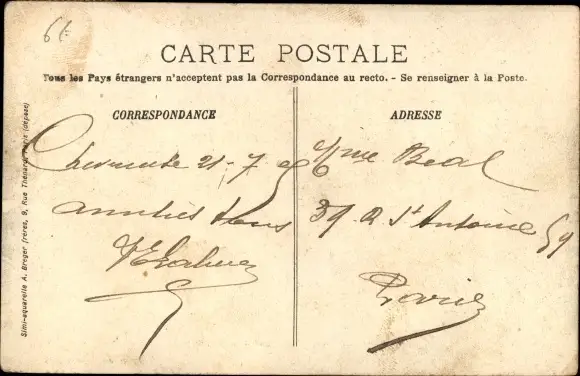 CARTE POSTALE
Tous les Pays étrangers n'acceptent pas la Correspondance au recto. - Se renseigner à la Poste.
CORRESPONDANCE
ADRESSE
21-7
Mme Beal
amitiés
39 R St Antoine
Paris
Simi-aquarelle A. Breger frères, 9, Rue Thénard, Paris (déposé)